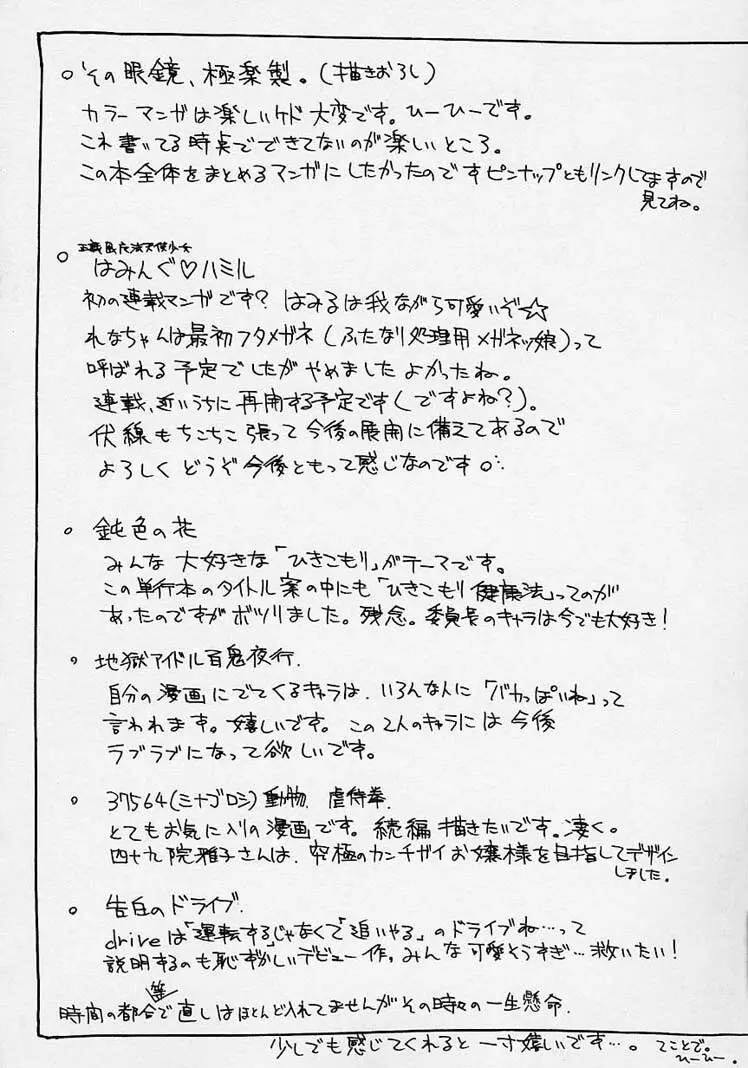 ○ その眼鏡、極楽製。(描きおろし)
カラーマンガは楽しいケド大変です。ひーひーです。
これ書いてる時点でできてないのが楽しいところ。
この本全体をまとめるマンガにしたかったのですピンナップともリンクしてますので
見てね。
○ はみんぐ♡ハミル
初の連載マンガです? はみるは我ながら可愛いぞ☆
れなちゃんは最初フタメガネ(ふたなり処理用メガネッ娘)って
呼ばれる予定でしたがやめましたよかったね。
連載、近いうちに再開する予定です(ですよね?)。
伏線もちこちこ張って今後の展開に備えてあるので
よろしくどうぞ今後ともって感じなのです
○ 鈍色の花
みんな大好きな「ひきこもり」がテーマです。
この単行本のタイトル案の中にも「ひきこもり健康法」ってのが
あったのですがボツりました。残念。委員長のキャラは今でも大好き!
○ 地獄アイドル百鬼夜行.
自分の漫画にでてくるキャラは、いろんな人に「バカっぽいね」って
言われます。嬉しいです。この2人のキャラには今後
ラブラブになって欲しいです。
○ 37564(ミナゴロシ)動物虐待拳.
とてもお気に入りの漫画です。続編描きたいです。凄く。
四十九院雅子さんは、究極のカンチガイお嬢様を目指してデザイン
しました。
○ 告白のドライブ.
driveは「運転する」じゃなくて「追いやる」のドライブね…って
説明するのも恥ずかしいデビュー作。みんな可愛そうすぎ…救いたい!
時間の都合等で直しはほとんど入れてませんがその時々の一生懸命.
少しでも感じてくれると一寸嬉しいです…。てことで。
ひーひー。